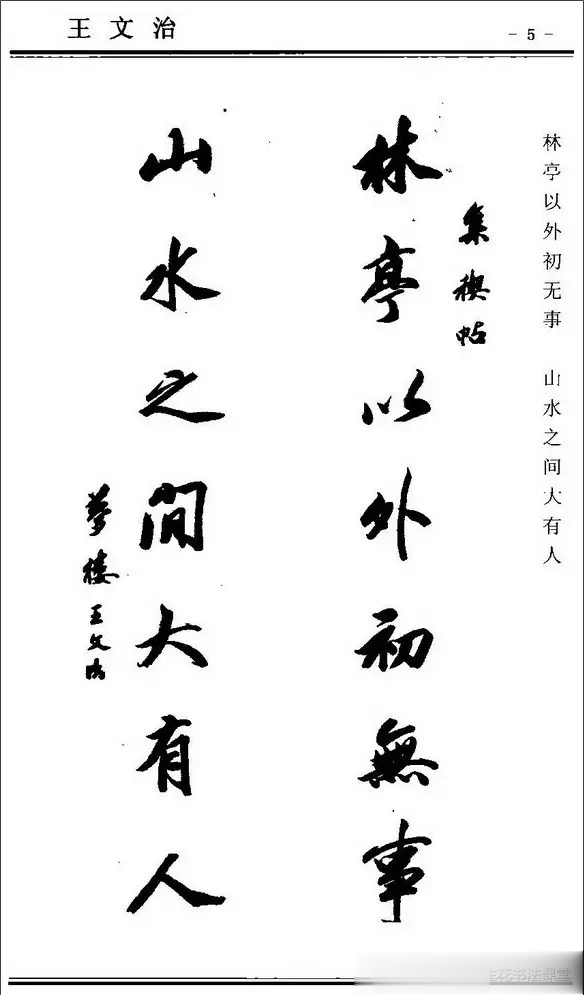 王文治
- 5 -
林亭以外初无事 山水之间大有人
集禊帖
林亭以外初無事
山水之間大有人
夢樓王文治
花书法课堂